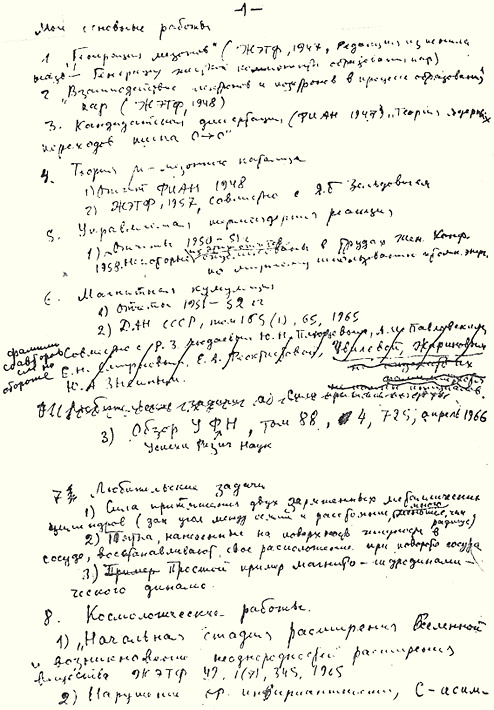 -1-
Мои основные работы
1 „Генерация мезонов“ (ЖЭТФ, 1947, Редакция изменила
назв— Генерац жесткой компоненты
2 „Взаимодействие электронов и позитронов в процессе образования
пар (ЖЭТФ, 1948)
3. Кандидатская диссертация (ФИАН 1947) „Теория ядерных
переходов типа 0→0“
4. Теория μ-мезонного катализа
1) Отчет ФИАН 1948
2) ЖЭТФ, 1957, совместно с Я.Б Зельдовичем
5. Управляемая термоядерная реакция
1) Отчеты 1950-51 г.
1958. Некоторые из этих отчетов в Трудах Жен. Конф.
по мирному использованию атомн. энерг.
6. Магнитная кумуляция
1) Отчеты 1951-52 гг
2) ДАН СССР, том 165 (1), 65, 1965
фамилии соавторов см на обороте
Совместно с Р.З. Людаевым, Ю.Н. Плющевым, А.И. Павловским
Е.Н. Смирновым, Е.А. Феоктистовой,
Ю.А.
3) Обзор УФН, том 88, 4, 725, апрель 1966
Успехи Физич Наук
7 Любительские задачи
1) Сила притяжения двух заряженных металлических
цилиндров (зад угол между осями и расстояние, много меньшие, чем
радиус)
2) Пятна, нанесенные на поверхность глицерина в
сосуде, восстанавливают свое расположение при повороте сосуда
3) Пример Простой пример магнито-гидродинами-
ческого динамо.
8. Космологические работы.
1) „Начальная стадия расширения Вселенной
и возникновение неоднородности распределения
вещества ЖЭТФ 49, 1(7), 345, 1965
2) Нарушение СР инвариантности, С-асим-